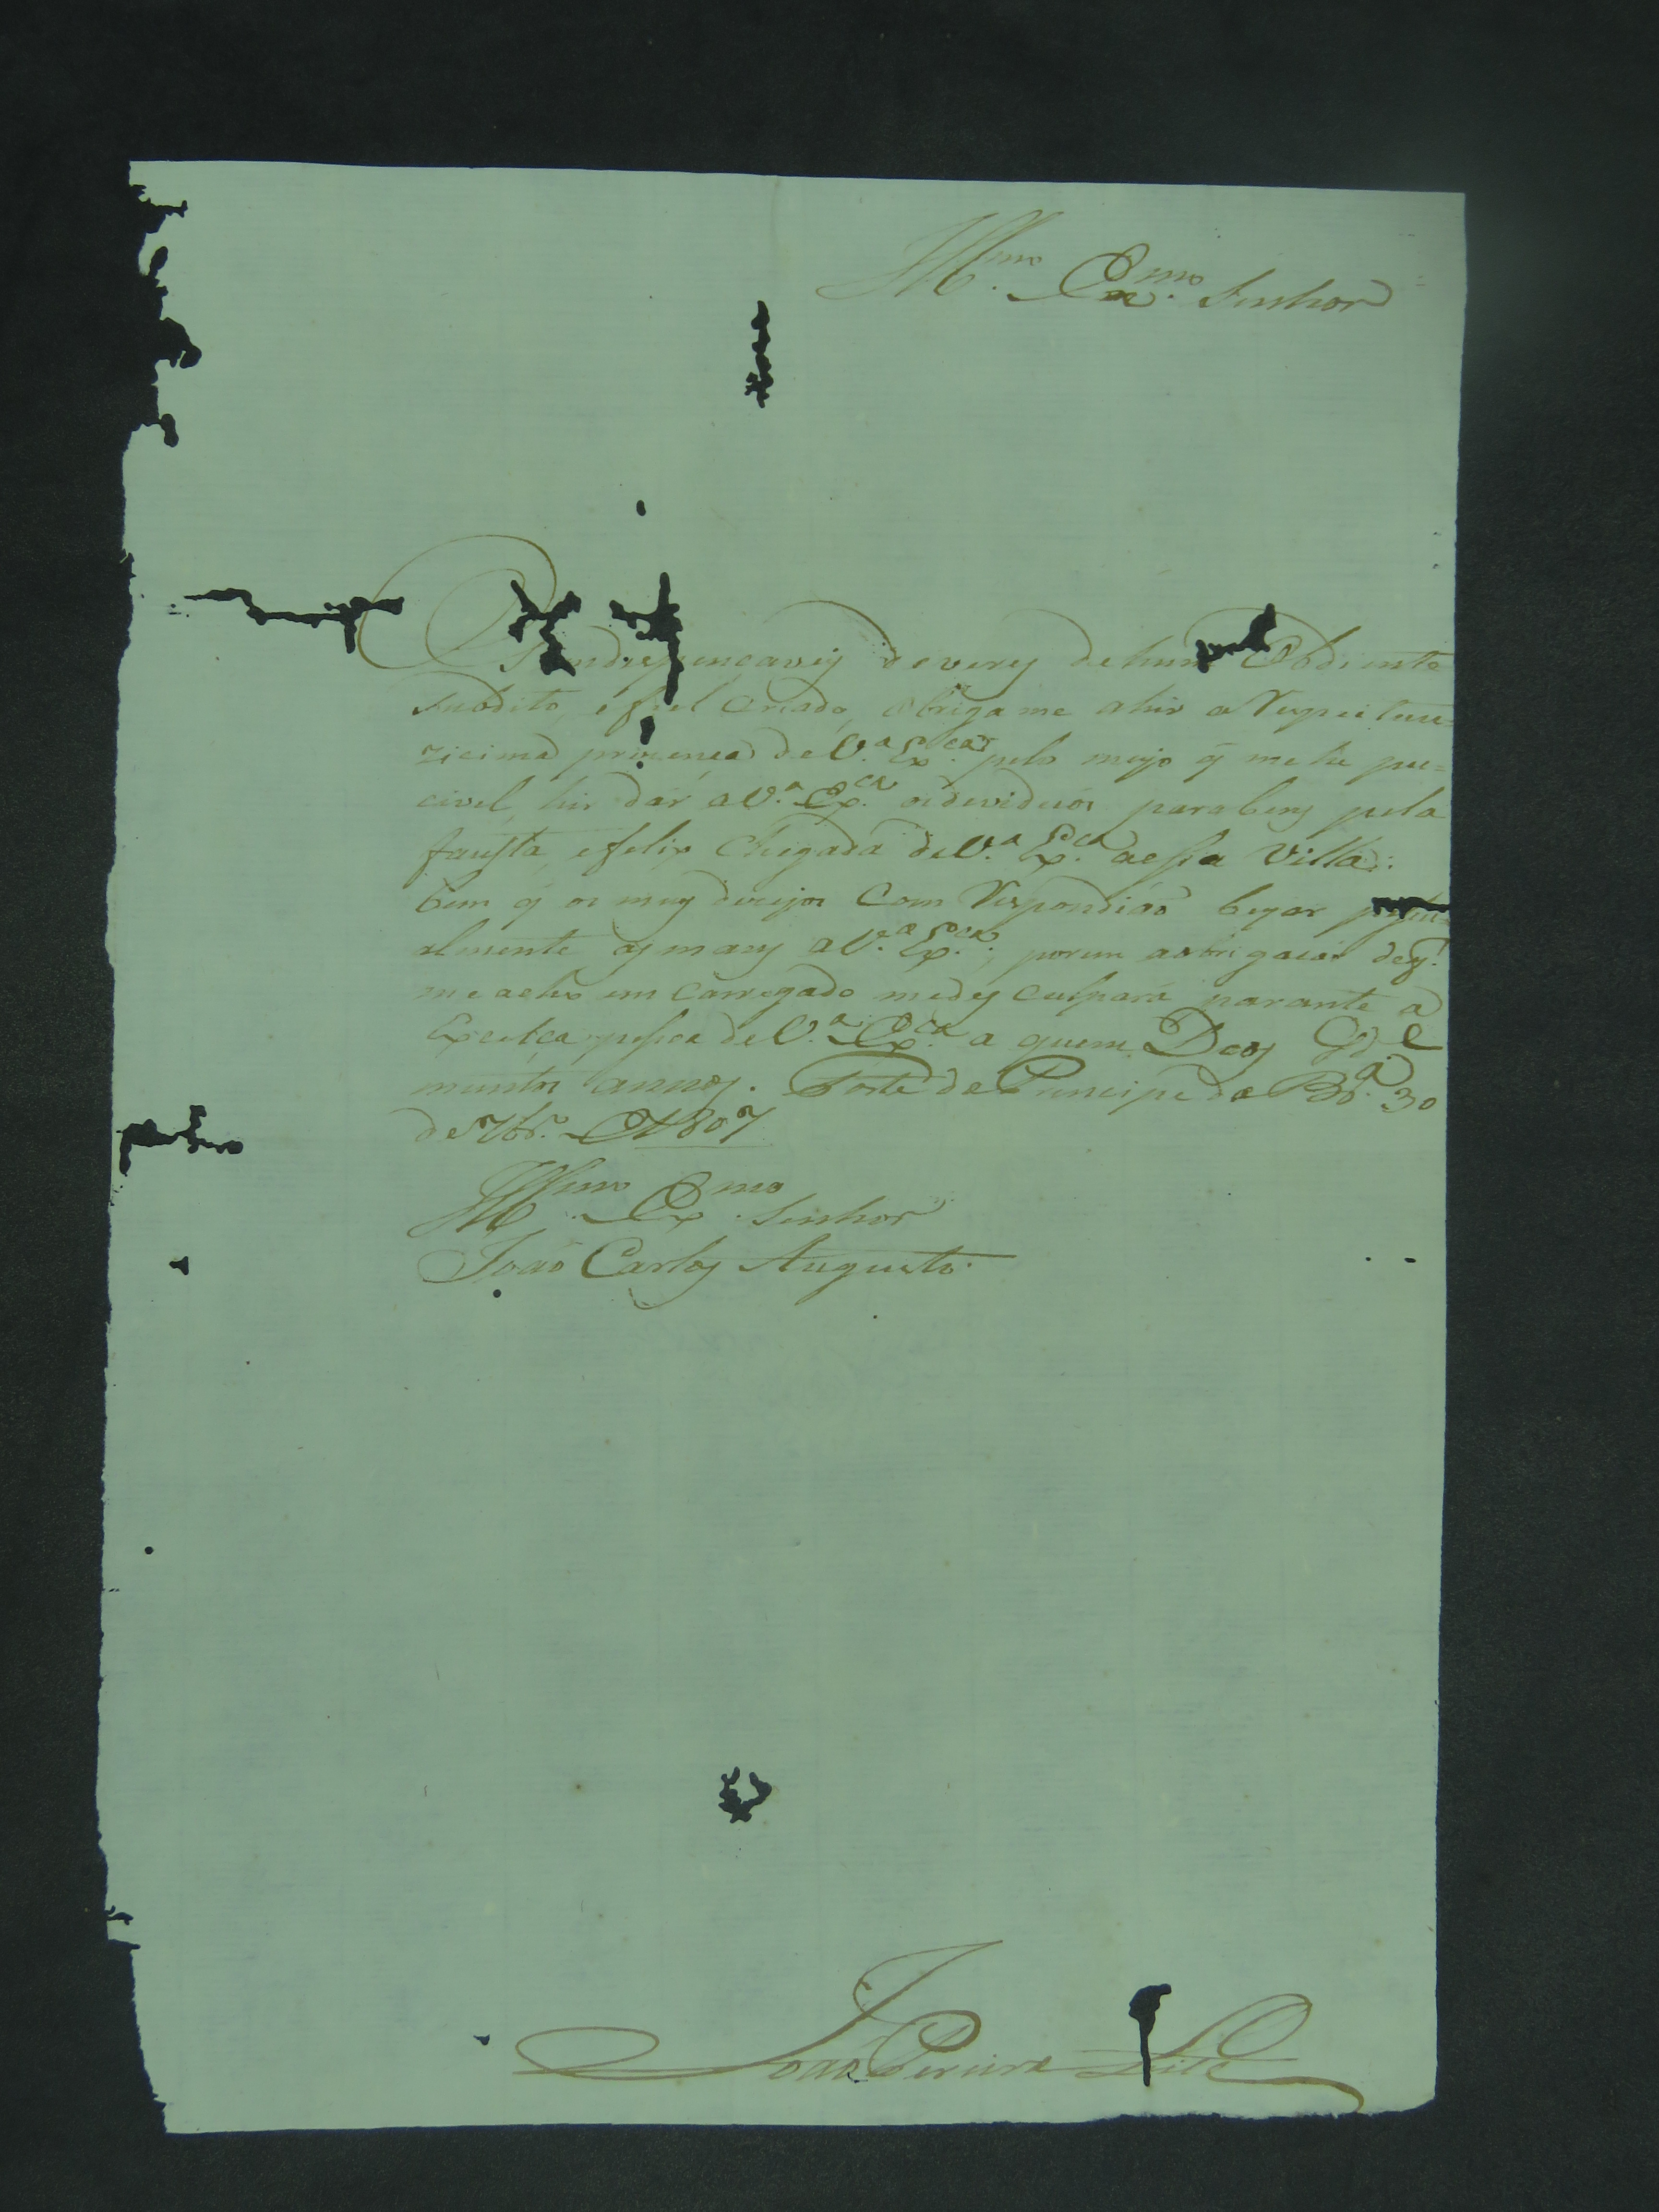 Ill.mo Ex.mo Senhor
deverẽs de hum Obdiente
Subdito, e fiel Criado, obriga me ahir a Respeitau=
zicima de V.a Ex.ca pelo meyo q̃ me he pu=
civel, hir dár a V.a Ex.ca os devidos parabens pela
fausta, e felix Chegada de V.a Ex.ca a essa Villa:
bem q̃ os meus dezejos Com Respondiáo bejar
almente as maos a V.a Ex.ca; porem aobrigacáo de q̃
me acho em Carregado me des culpará parante a
de V.a Ex.ca a quem Deos G.de
muntos annos. Forte do Principe da Br.a 30
de 7br.o de 1807
Ill.mo Ex.mo Senhor
Joaõ Carlos Augusto
Joaõ Pereira Leite